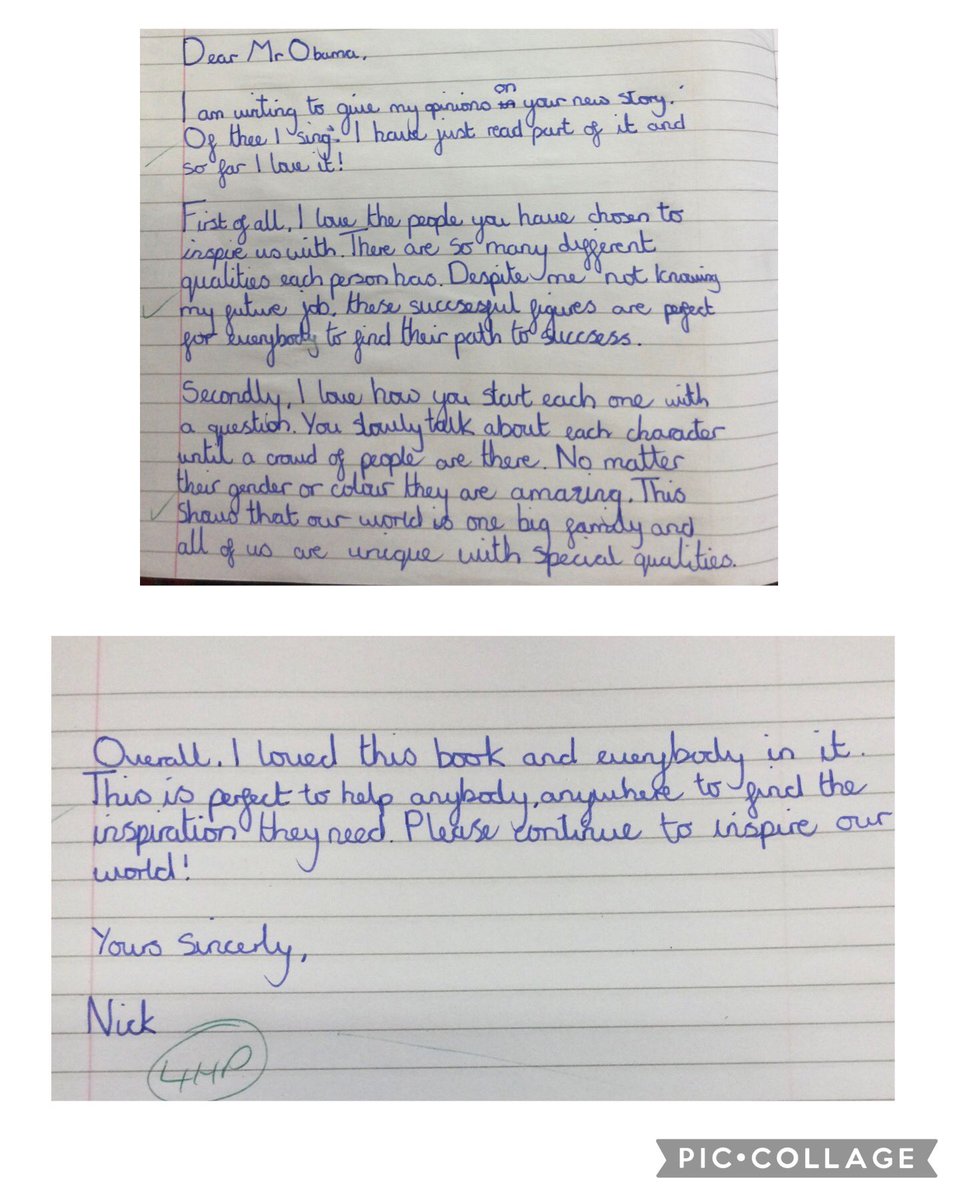 Dear Mr Obama,
I am writing to give my opinions on your new story.
'Of thee I sing'. I have just read part of it and
so far I love it!
First of all, I love the people you have chosen to
inspire us with. There are so many different
qualities each person has. Despite me not knowing
my future job, these succsesful figures are perfect
for everybody to find their path to succsess.
Secondly, I love how you start each one with
a question. You slowly talk about each character
until a crowd of people are there. No matter
their gender or colour they are amazing. This
shows that our world is one big family and
all of us are unique with special qualities.
Overall, I loved this book and everybody in it.
This is perfect to help anybody, anywhere to find the
inspiration they need. Please continue to inspire our
world!
Yours sincerly,
Nick
4HP
PIC•COLLAGE